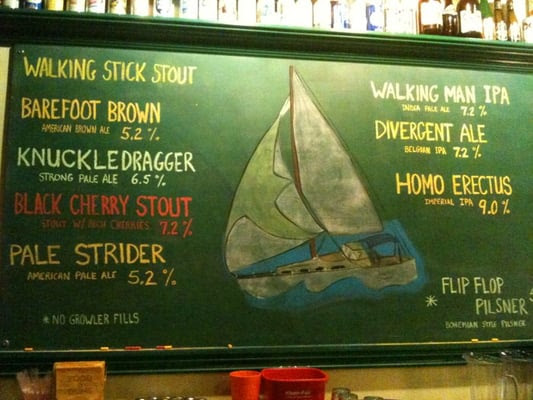 WALKING STICK STOUT
BAREFOOT BROWN
AMERICAN BROWN ALE 5.2 %
KNUCKLEDRAGGER
STRONG PALE ALE 6.5 %
BLACK CHERRY STOUT
STOUT W/ RICH CHERRIES 7.2 %
PALE STRIDER
AMERICAN PALE ALE 5.2 %
*NO GROWLER FILLS
WALKING MAN IPA
INDIA PALE ALE 7.2 %
DIVERGENT ALE
BELGIAN IPA 7.2 %
HOMO ERECTUS
IMPERIAL IPA 9.0 %
* FLIP FLOP
PILSNER
BOHEMIAN STYLE PILSNER